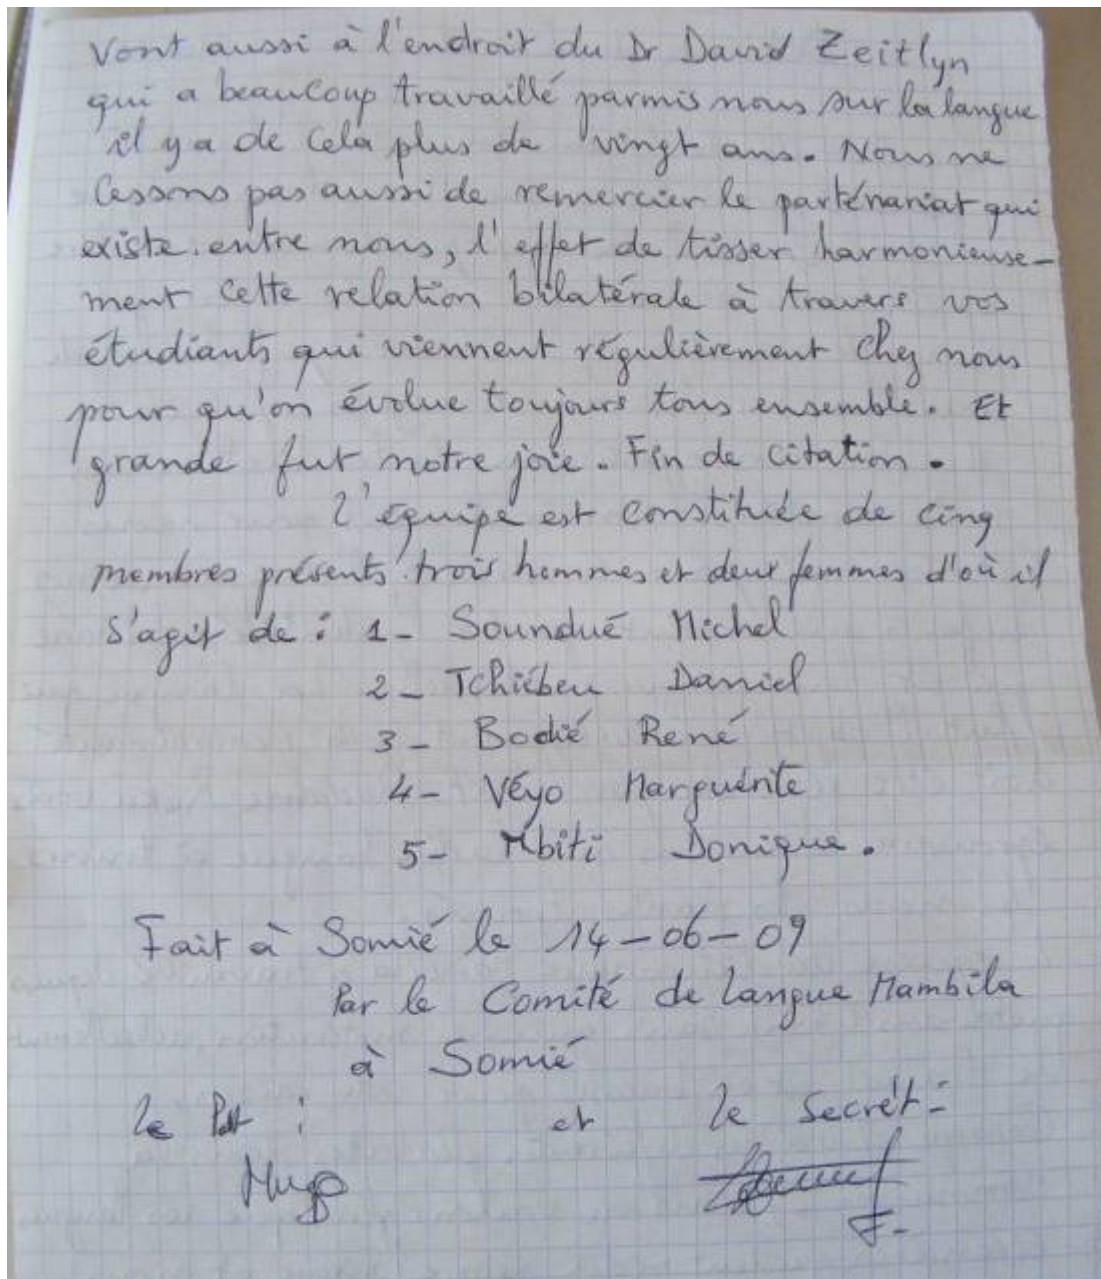 vont aussi à l'endroit du Dr David Zeitlyn
qui a beaucoup travaillé parmis nous sur la langue
il y a de cela plus de vingt ans. Nous ne
cessons pas aussi de remercier le parténariat qui
existe entre nous, l'effet de tisser harmonieuse-
ment cette relation bilatérale à travers vos
étudiants qui viennent régulièrement chez nous
pour qu'on évolue toujours tous ensemble. Et
grande fut notre joie. Fin de citation.
L'équipe est constituée de cinq
membres présents trois hommes et deux femmes d'où il
s'agit de : 1- Soundué Michel
2- Tchiébeu Daniel
3- Bodié René
4- Véyo Marguérite
5- Mbiti Donique.
Fait à Somié le 14-06-09
Par le Comité de langue Mambila
à Somié
Le Pdt : et Le Secrét: